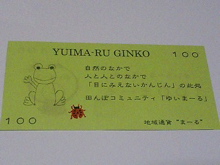 YUIMA-RU GINKO 100
自然のなかで
人と人とのなかで
「目にみえないかんじん」の此処
田んぼコミュニティ「ゆいまーる」
100
地域通貨 "まーる"